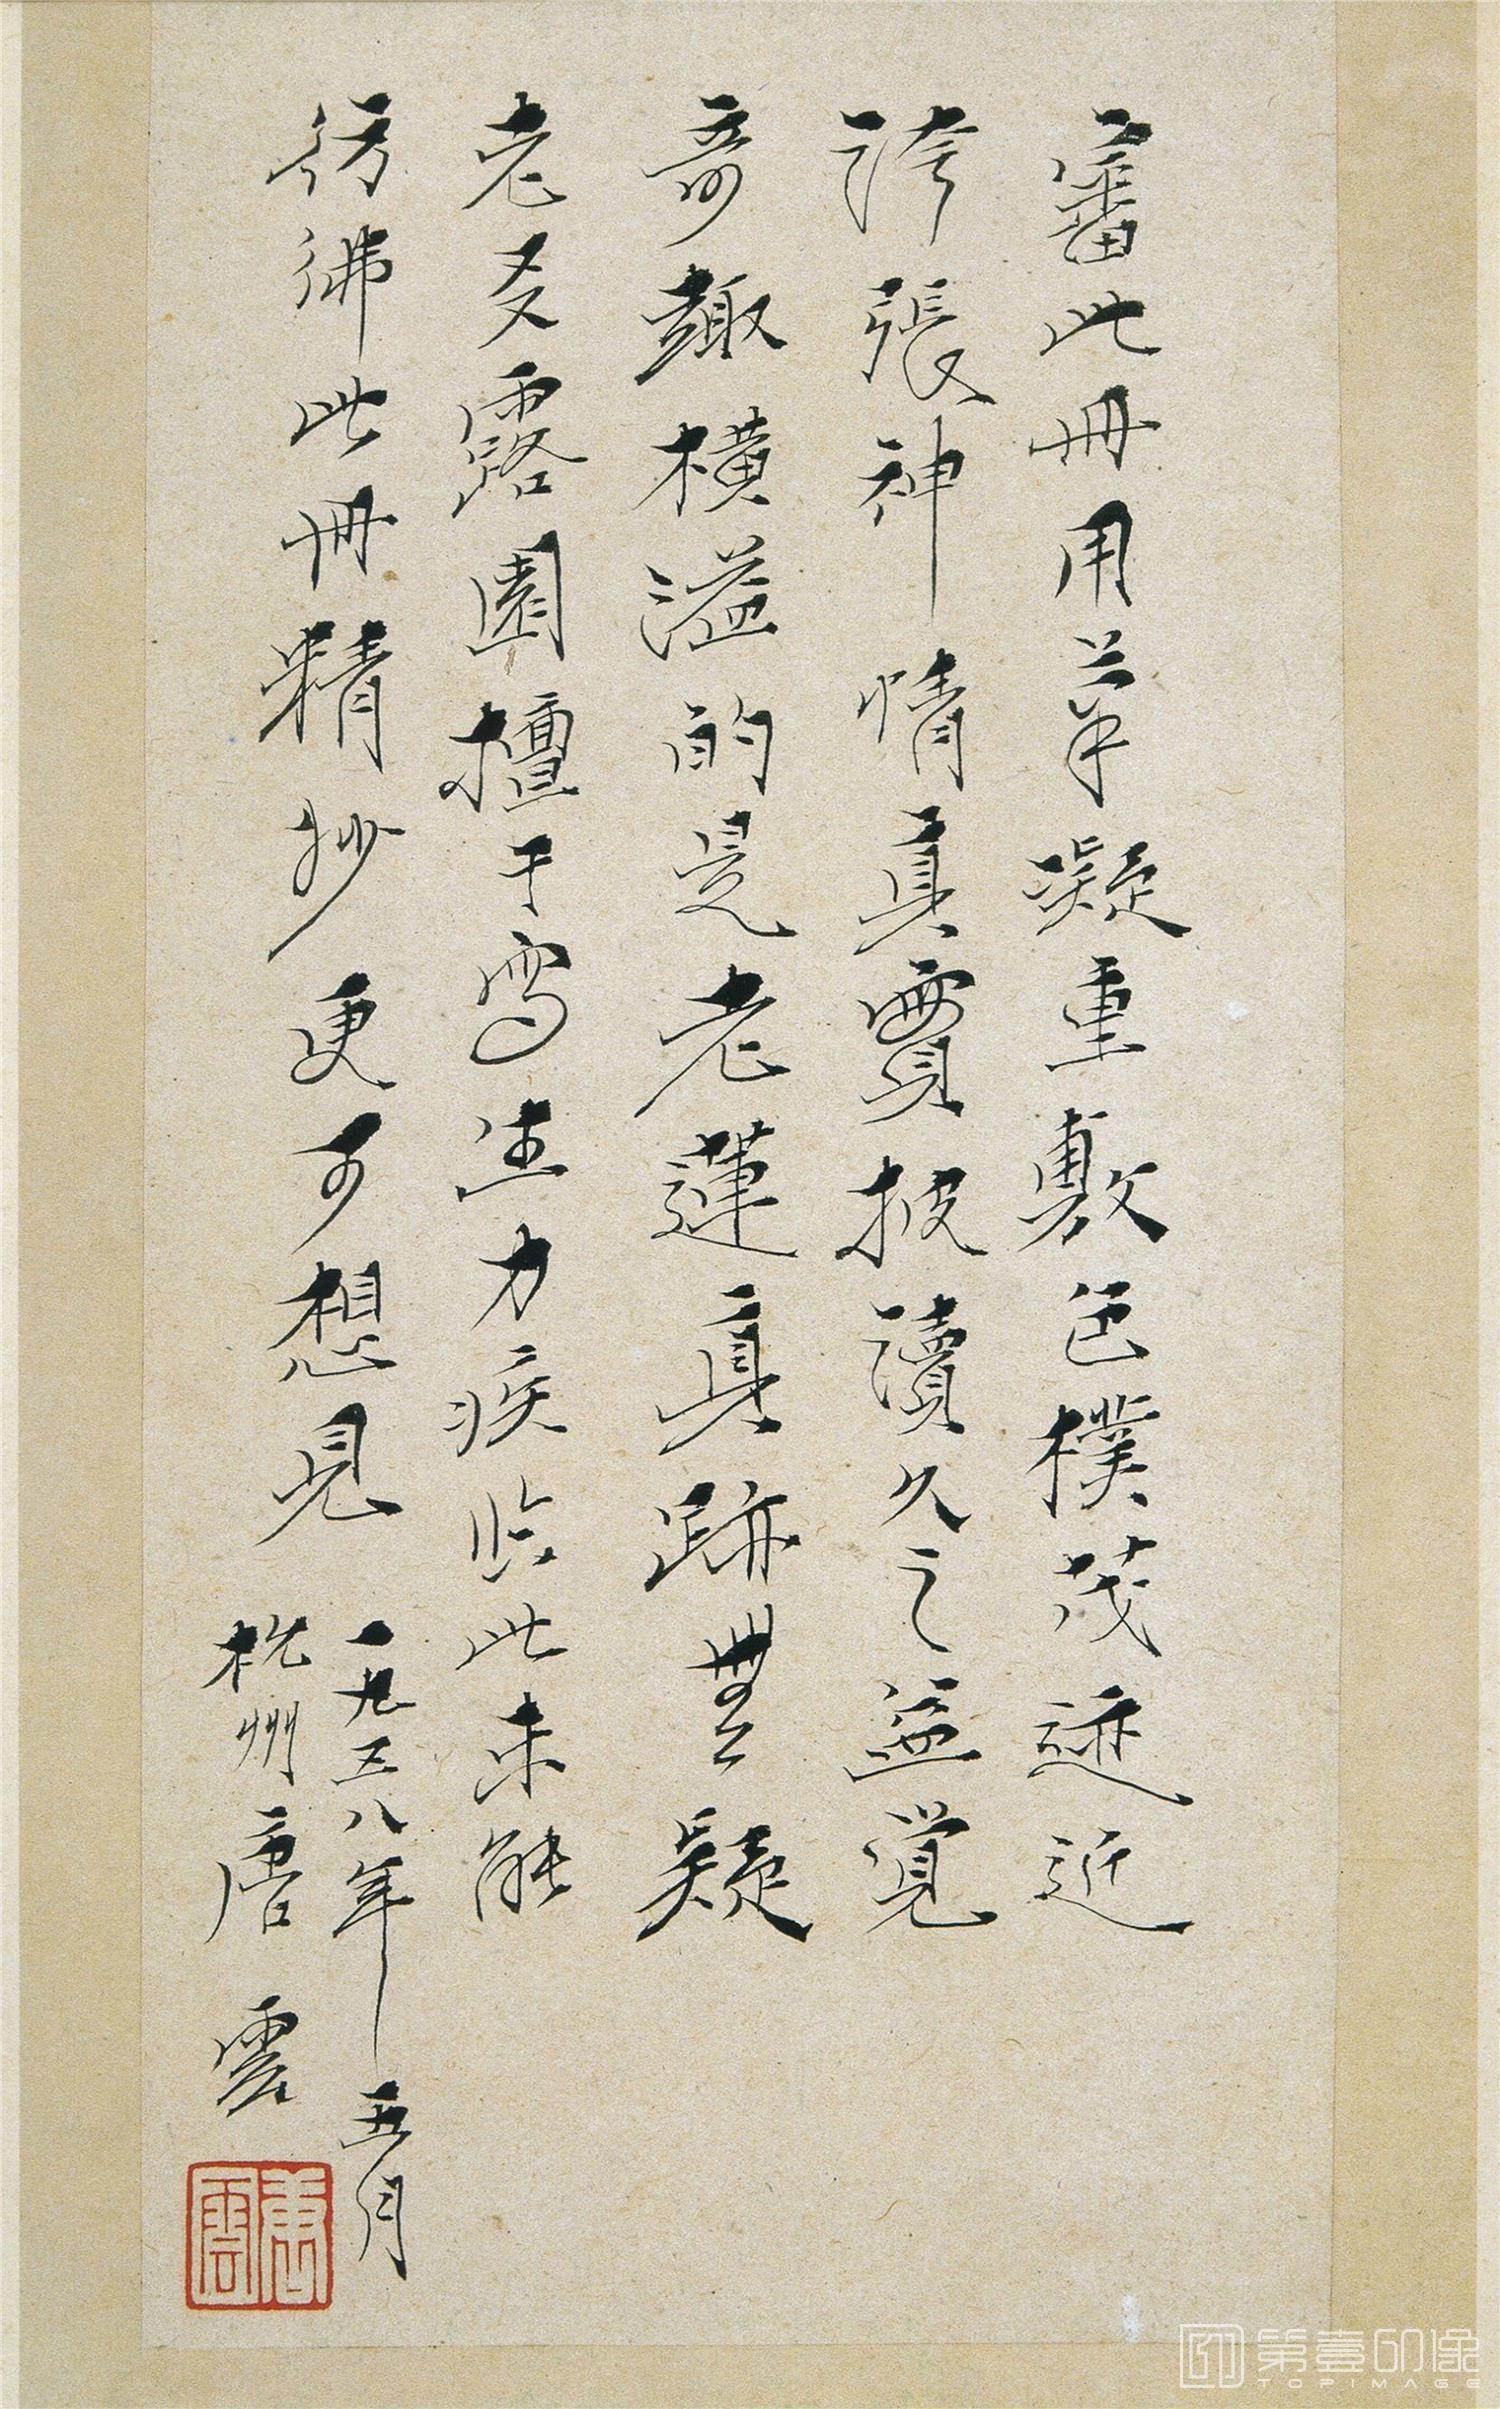 審此冊用筆凝重敷色樸茂迹近
誇張神情真實披讀久之益覺
奇趣橫溢的是老蓮真跡無疑
老友露園擅于寫生力疾临此未能
彷彿此冊精抄更可想見
一九五八年五月
杭州唐雲
唐雲
第壹印像
TOPIMAGE